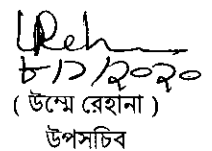 ৮/১/২০২০
( উম্মে রেহানা )
উপসচিব